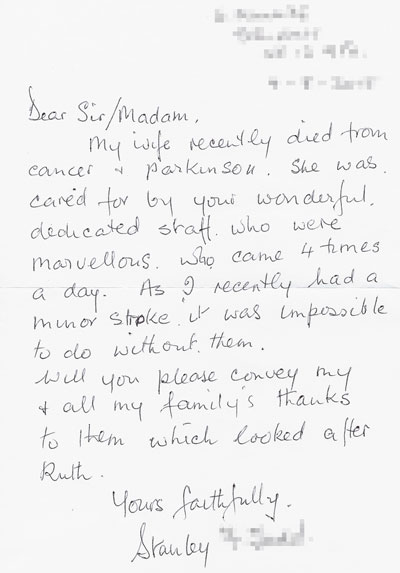 Dear Sir/Madam,
My wife recently died from
cancer & Parkinson. She was
cared for by your wonderful,
dedicated staff. who were
marvellous. who came 4 times
a day. As I recently had a
minor stroke it was impossible
to do without them.
Will you please convey my
& all my family's thanks
to them which looked after
Ruth.
Yours faithfully.
Stanley